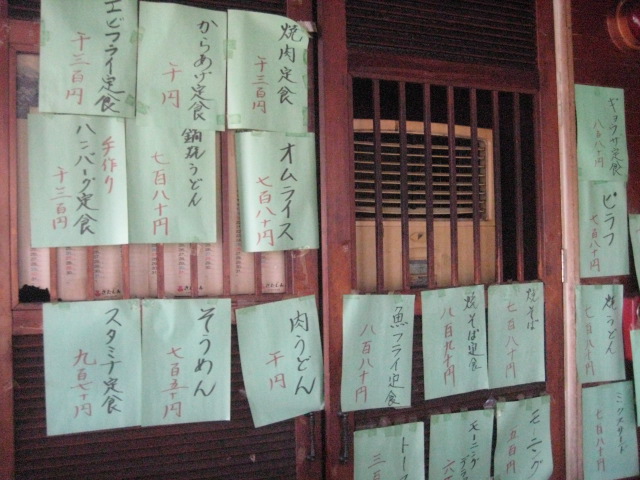 焼肉定食
千三百円
からあげ定食
千円
エビフライ定食
千三百円
オムライス
七百八十円
鍋焼うどん
七百八十円
手作り
ハンバーグ定食
千三百円
肉うどん
千円
そうめん
七百五十円
スタミナ定食
九百七十円
焼そば
七百八十円
焼そば定食
八百九十円
魚フライ定食
八百八十円
モーニング
五百円
モーニング
トー
三
ギョウザ定食
八百八十円
ピラフ
七百八十円
焼うどん
七百八十円
ミックスサンド
七百八十円